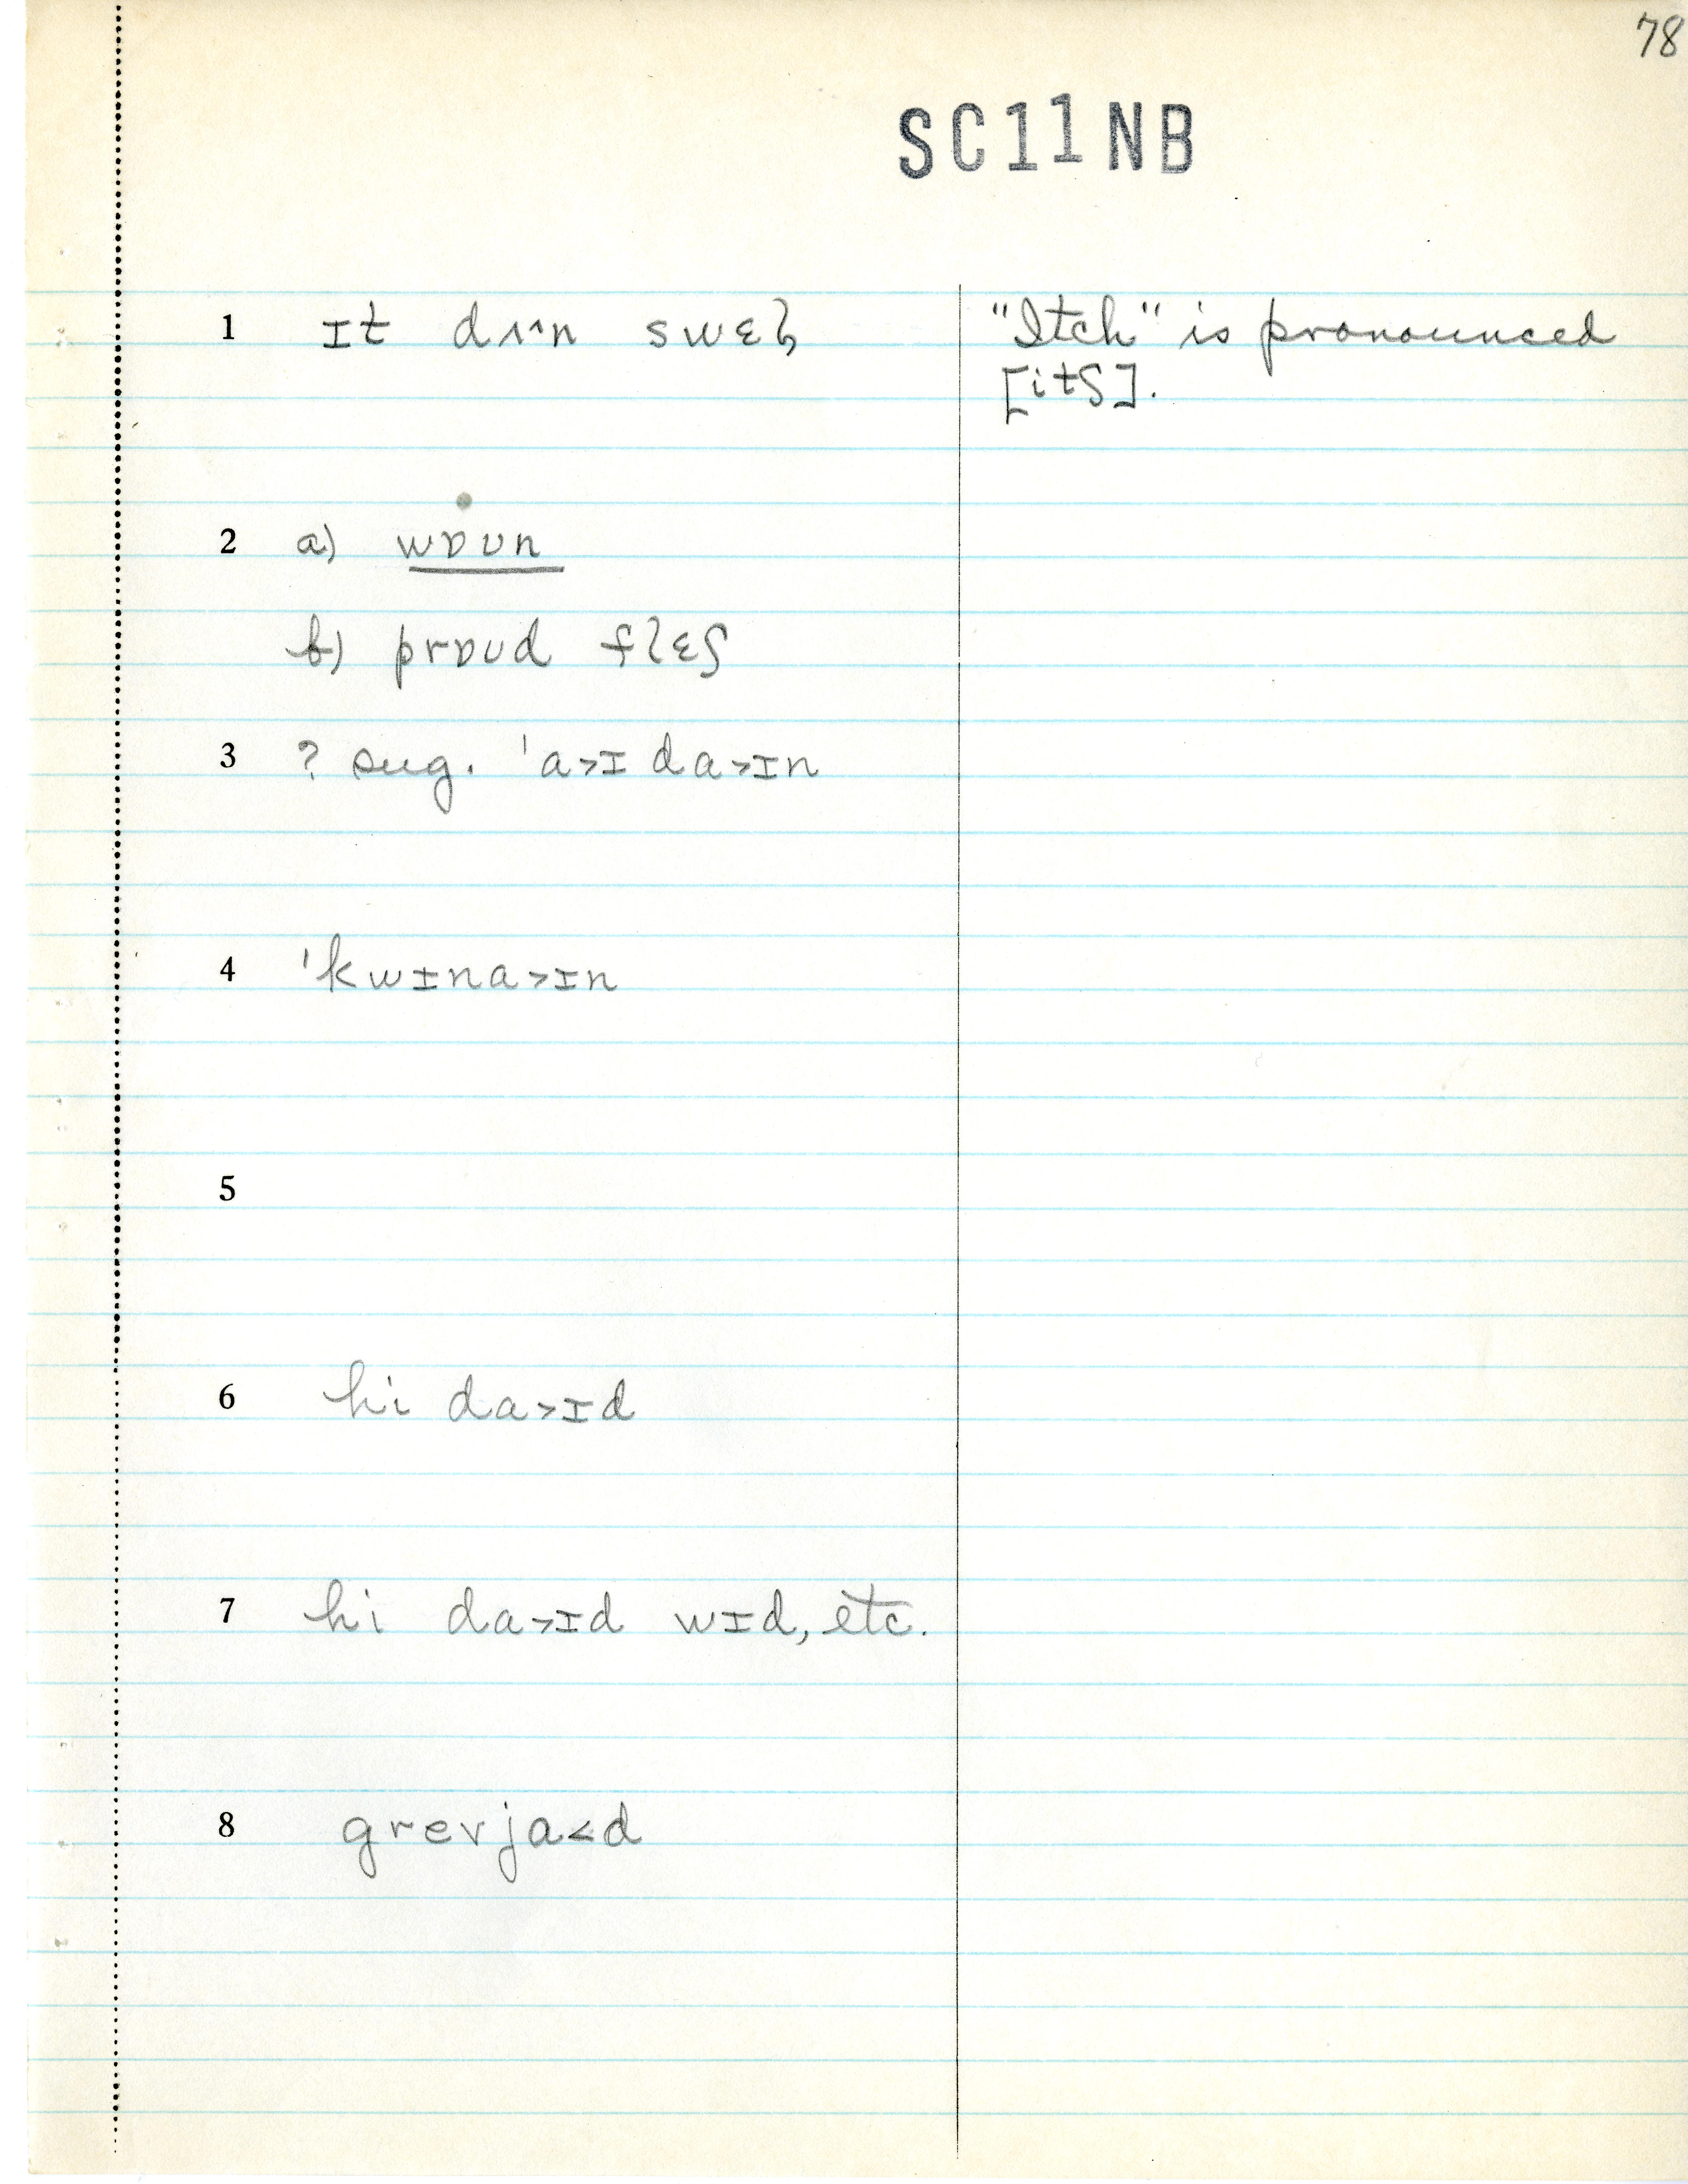 78
SC11NB
1 ɪt dʌˑn swɛɫ
"Itch" is pronounced
[itʃ].
2 a) wɒun
b) prɒud flɛʃ
3 ? sug. ˈa˃ɪ da˃ɪn
4 ˈkwɪna˃ɪn
5
6 hi da˃ɪd
7 hi da˃ɪd wɪd, etc.
8 grevja˂d